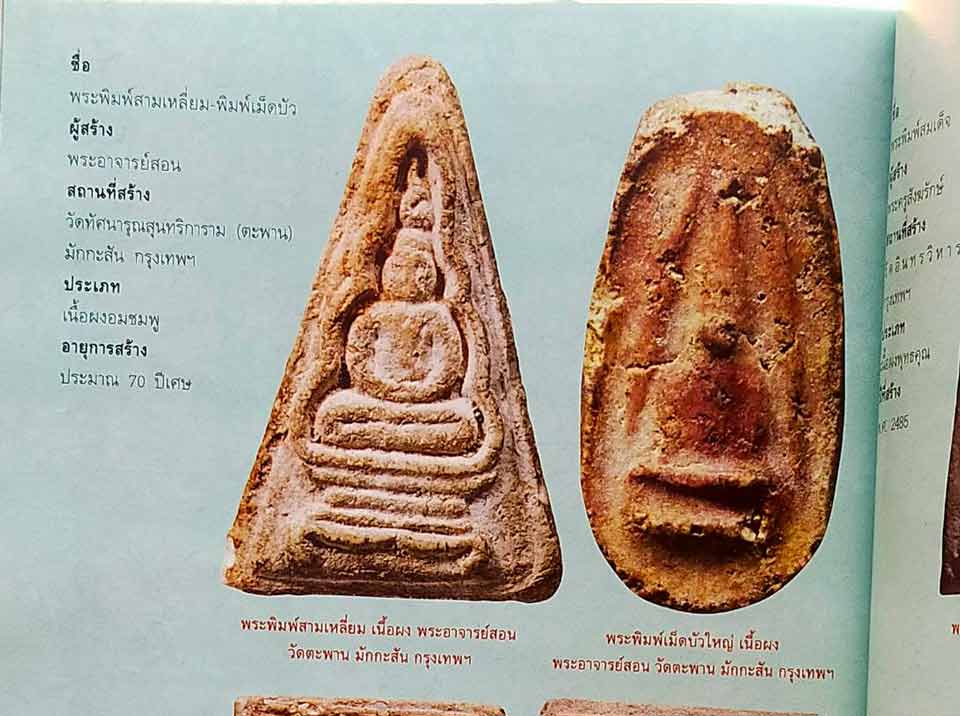 ชื่อ
พระพิมพ์สามเหลี่ยม-พิมพ์เม็ดบัว
ผู้สร้าง
พระอาจารย์สอน
สถานที่สร้าง
วัดทัศนารุณสุนทริการาม (ตะพาน)
มักกะสัน กรุงเทพฯ
ประเภท
เนื้อผงอมชมพู
อายุการสร้าง
ประมาณ 70 ปีเศษ
พระพิมพ์สามเหลี่ยม เนื้อผง พระอาจารย์สอน
วัดตะพาน มักกะสัน กรุงเทพฯ
พระพิมพ์เม็ดบัวใหญ่ เนื้อผง
พระอาจารย์สอน วัดตะพาน มักกะสัน กรุงเทพฯ
พระพิมพ์สมเด็จ
ผู้สร้าง
พระครูสังฆรักษ์
สถานที่สร้าง
วัดอินทรวิหาร
กรุงเทพฯ
ประเภท
เนื้อผงพุทธคุณ
ปีที่สร้าง
พ.ศ. 2485